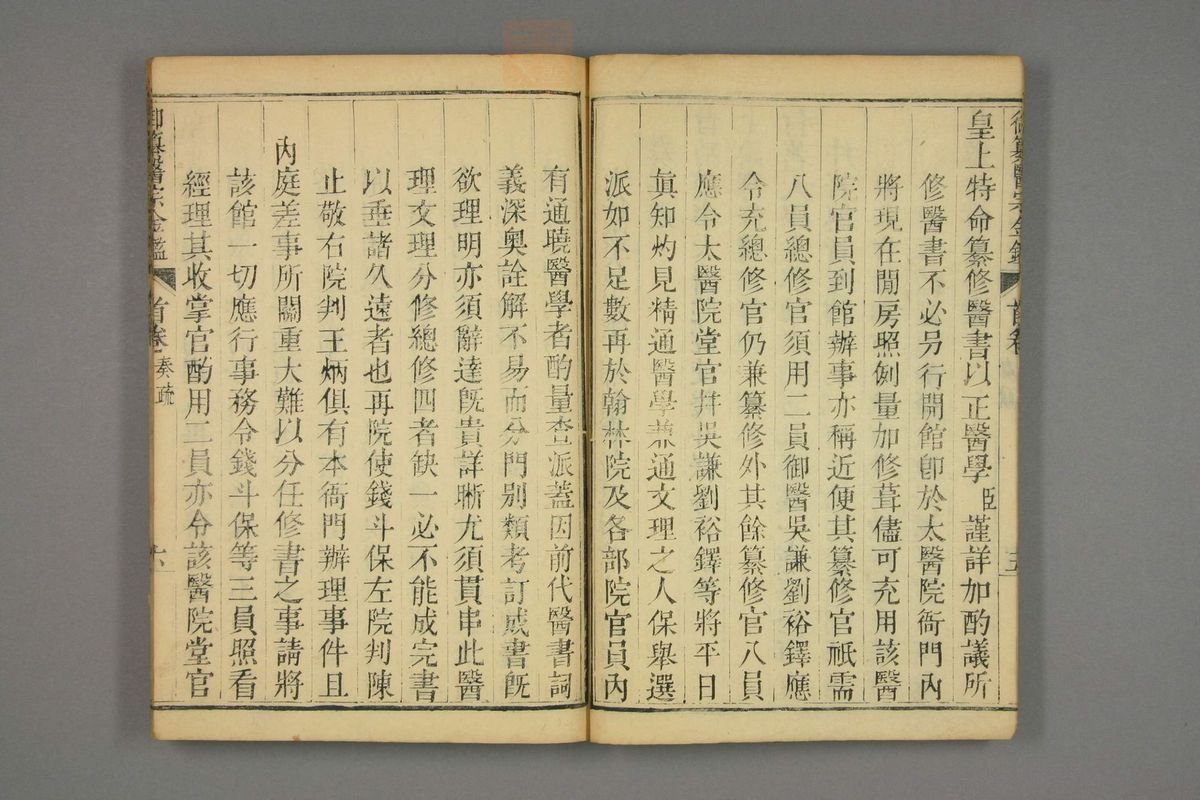 皇上特命纂修醫書以正醫學臣謹詳加酌議所
修醫書不必另行開館卽於太醫院衙門內
將現在閒房照例量加修葺儘可充用該醫
院官員到館辦事亦稱近便其纂修官祇需
八員總修官須用二員御醫吳謙劉裕鐸應
令充總修官仍兼纂修外其餘纂修官八員
應令太醫院堂官并吳謙劉裕鐸等將平日
眞知灼見精通醫學兼通文理之人保舉選
派如不足數再於翰林院及各部院官員內
御纂醫宗金鑑 首卷 奏疏 六
有通曉醫學者酌量查派蓋因前代醫書詞
義深奧詮解不易而分門別類考訂成書旣
欲理明亦須辭達旣貴詳晰尤須貫串此醫
理文理分修總修四者缺一必不能成完書
以垂諸久遠者也再院使錢斗保左院判陳
止敬右院判王炳俱有本衙門辦理事件且
內庭差事所關重大難以分任修書之事請將
該館一切應行事務令錢斗保等三員照看
經理其收掌官酌用二員亦令該醫院堂官